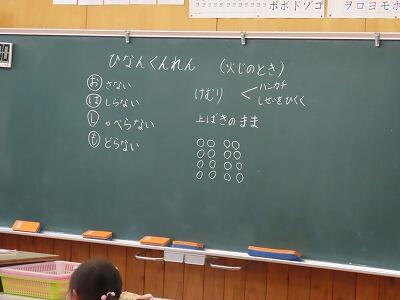 ポボドゾゴ
ヲロヨモホ
ひなんくんれん (火じのとき)
おさない
はしらない
しゃべらない
もどらない
けむり < ハンカチ
しせいをひくく
上ばきのまま